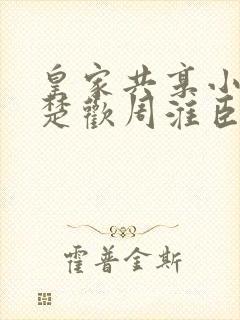 皇家共享小
楚歡周淮臣
霍普金斯